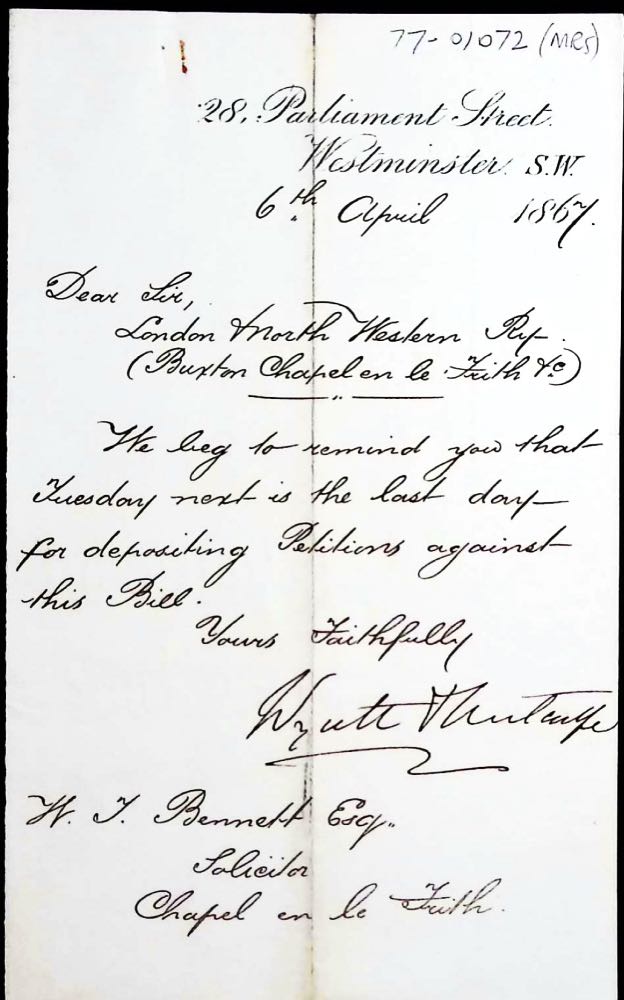 77-01072 (MRS)
28, Parliament Street.
Westminster. S.W.
6th April 1867.
Dear Sir,
London & North Western Ry.
(Buxton Chapel en le Frith &c)
We beg to remind you that
Tuesday next is the last day
for depositing Petitions against
this Bill.
Yours Faithfully
Wyatt & Metcalfe
W. T. Bennett Esq.
Solicitor
Chapel en le Frith.